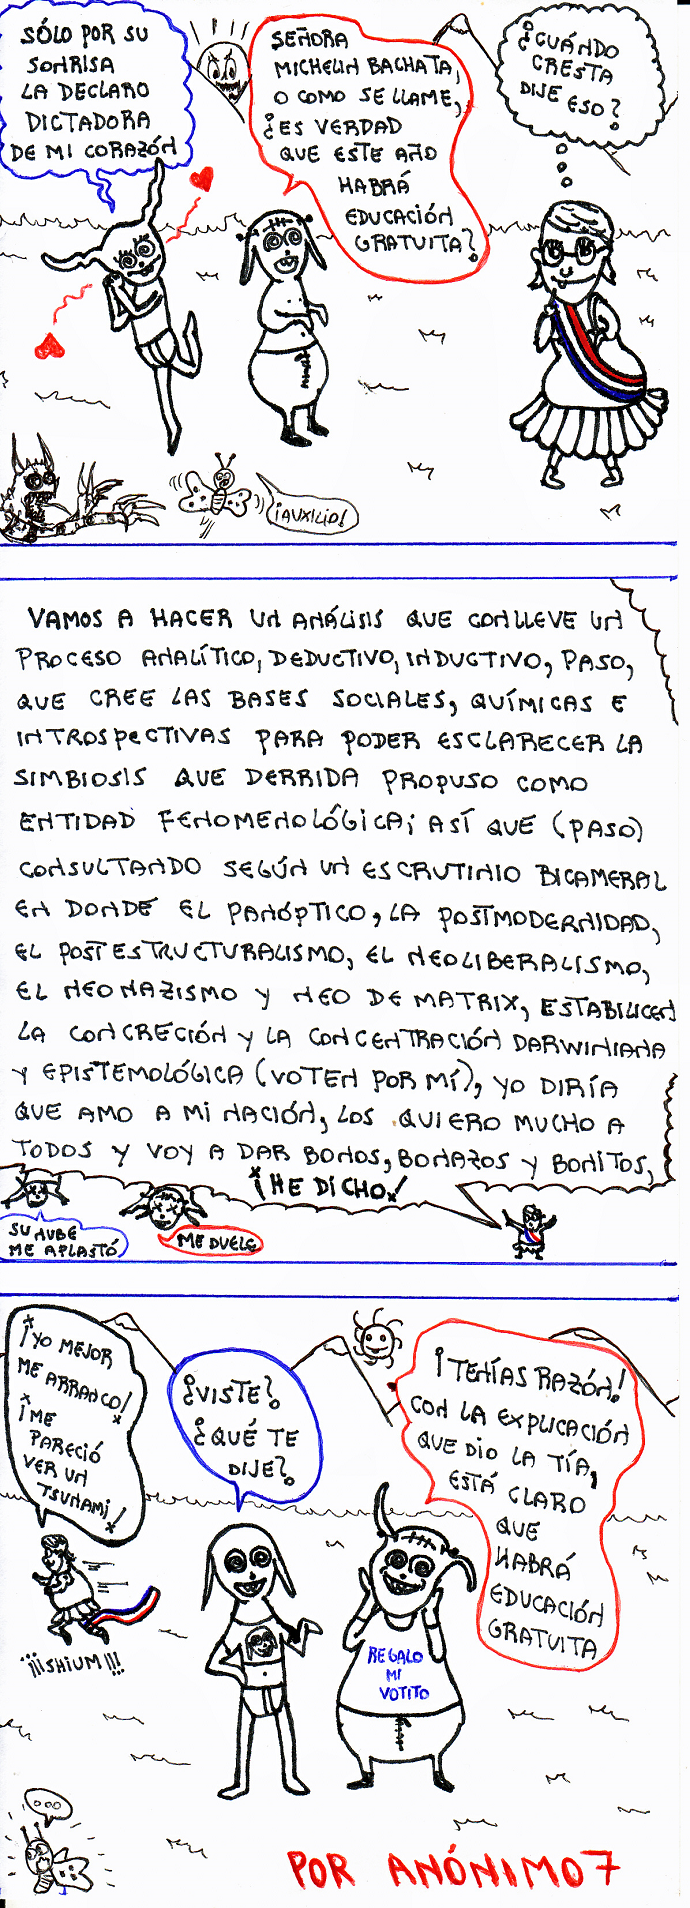 SÓLO POR SU
SONRISA
LA DECLARO
DICTADORA
DE MI CORAZÓN
SEÑORA
MICHELIN BACHATA,
O COMO SE LLAME,
¿ES VERDAD
QUE ESTE AÑO
HABRÁ
EDUCACIÓN
GRATUITA?
¿CUÁNDO
CRESTA
DIJE ESO?
¡AUXILIO!
VAMOS A HACER UN ANÁLISIS QUE CONLLEVE UN
PROCESO ANALÍTICO, DEDUCTIVO, INDUCTIVO, PASO,
QUE CREE LAS BASES SOCIALES, QUÍMICAS E
INTROSPECTIVAS PARA PODER ESCLARECER LA
SIMBIOSIS QUE DERRIDA PROPUSO COMO
ENTIDAD FENOMENOLÓGICA; ASÍ QUE (PASO)
CONSULTANDO SEGÚN UN ESCRUTINIO BICAMERAL
EN DONDE EL PANÓPTICO, LA POSTMODERNIDAD,
EL POSTESTRUCTURALISMO, EL NEOLIBERALISMO,
EL NEONAZISMO Y NEO DE MATRIX, ESTABILICEN
LA CONCRECIÓN Y LA CONCENTRACIÓN DARWINIANA
Y EPISTEMOLÓGICA (VOTEN POR MÍ), YO DIRÍA
QUE AMO A MI NACIÓN, LOS QUIERO MUCHO A
TODOS Y VOY A DAR BONOS, BONAZOS Y BONITOS,
¡HE DICHO!
SU NUBE
ME APLASTÓ
ME DUELE
¡YO MEJOR
ME ARRANCO!
¡ME
PARECIÓ
VER UN
TSUNAMI!
¿VISTE?
¿QUÉ TE
DIJE?
¡TENÍAS RAZÓN!
CON LA EXPLICACIÓN
QUE DIO LA TÍA,
ESTÁ CLARO
QUE
HABRÁ
EDUCACIÓN
GRATUITA
¡¡¡SHIUM!!!
REGALO
MI
VOTITO
...
POR ANÓNIMO7